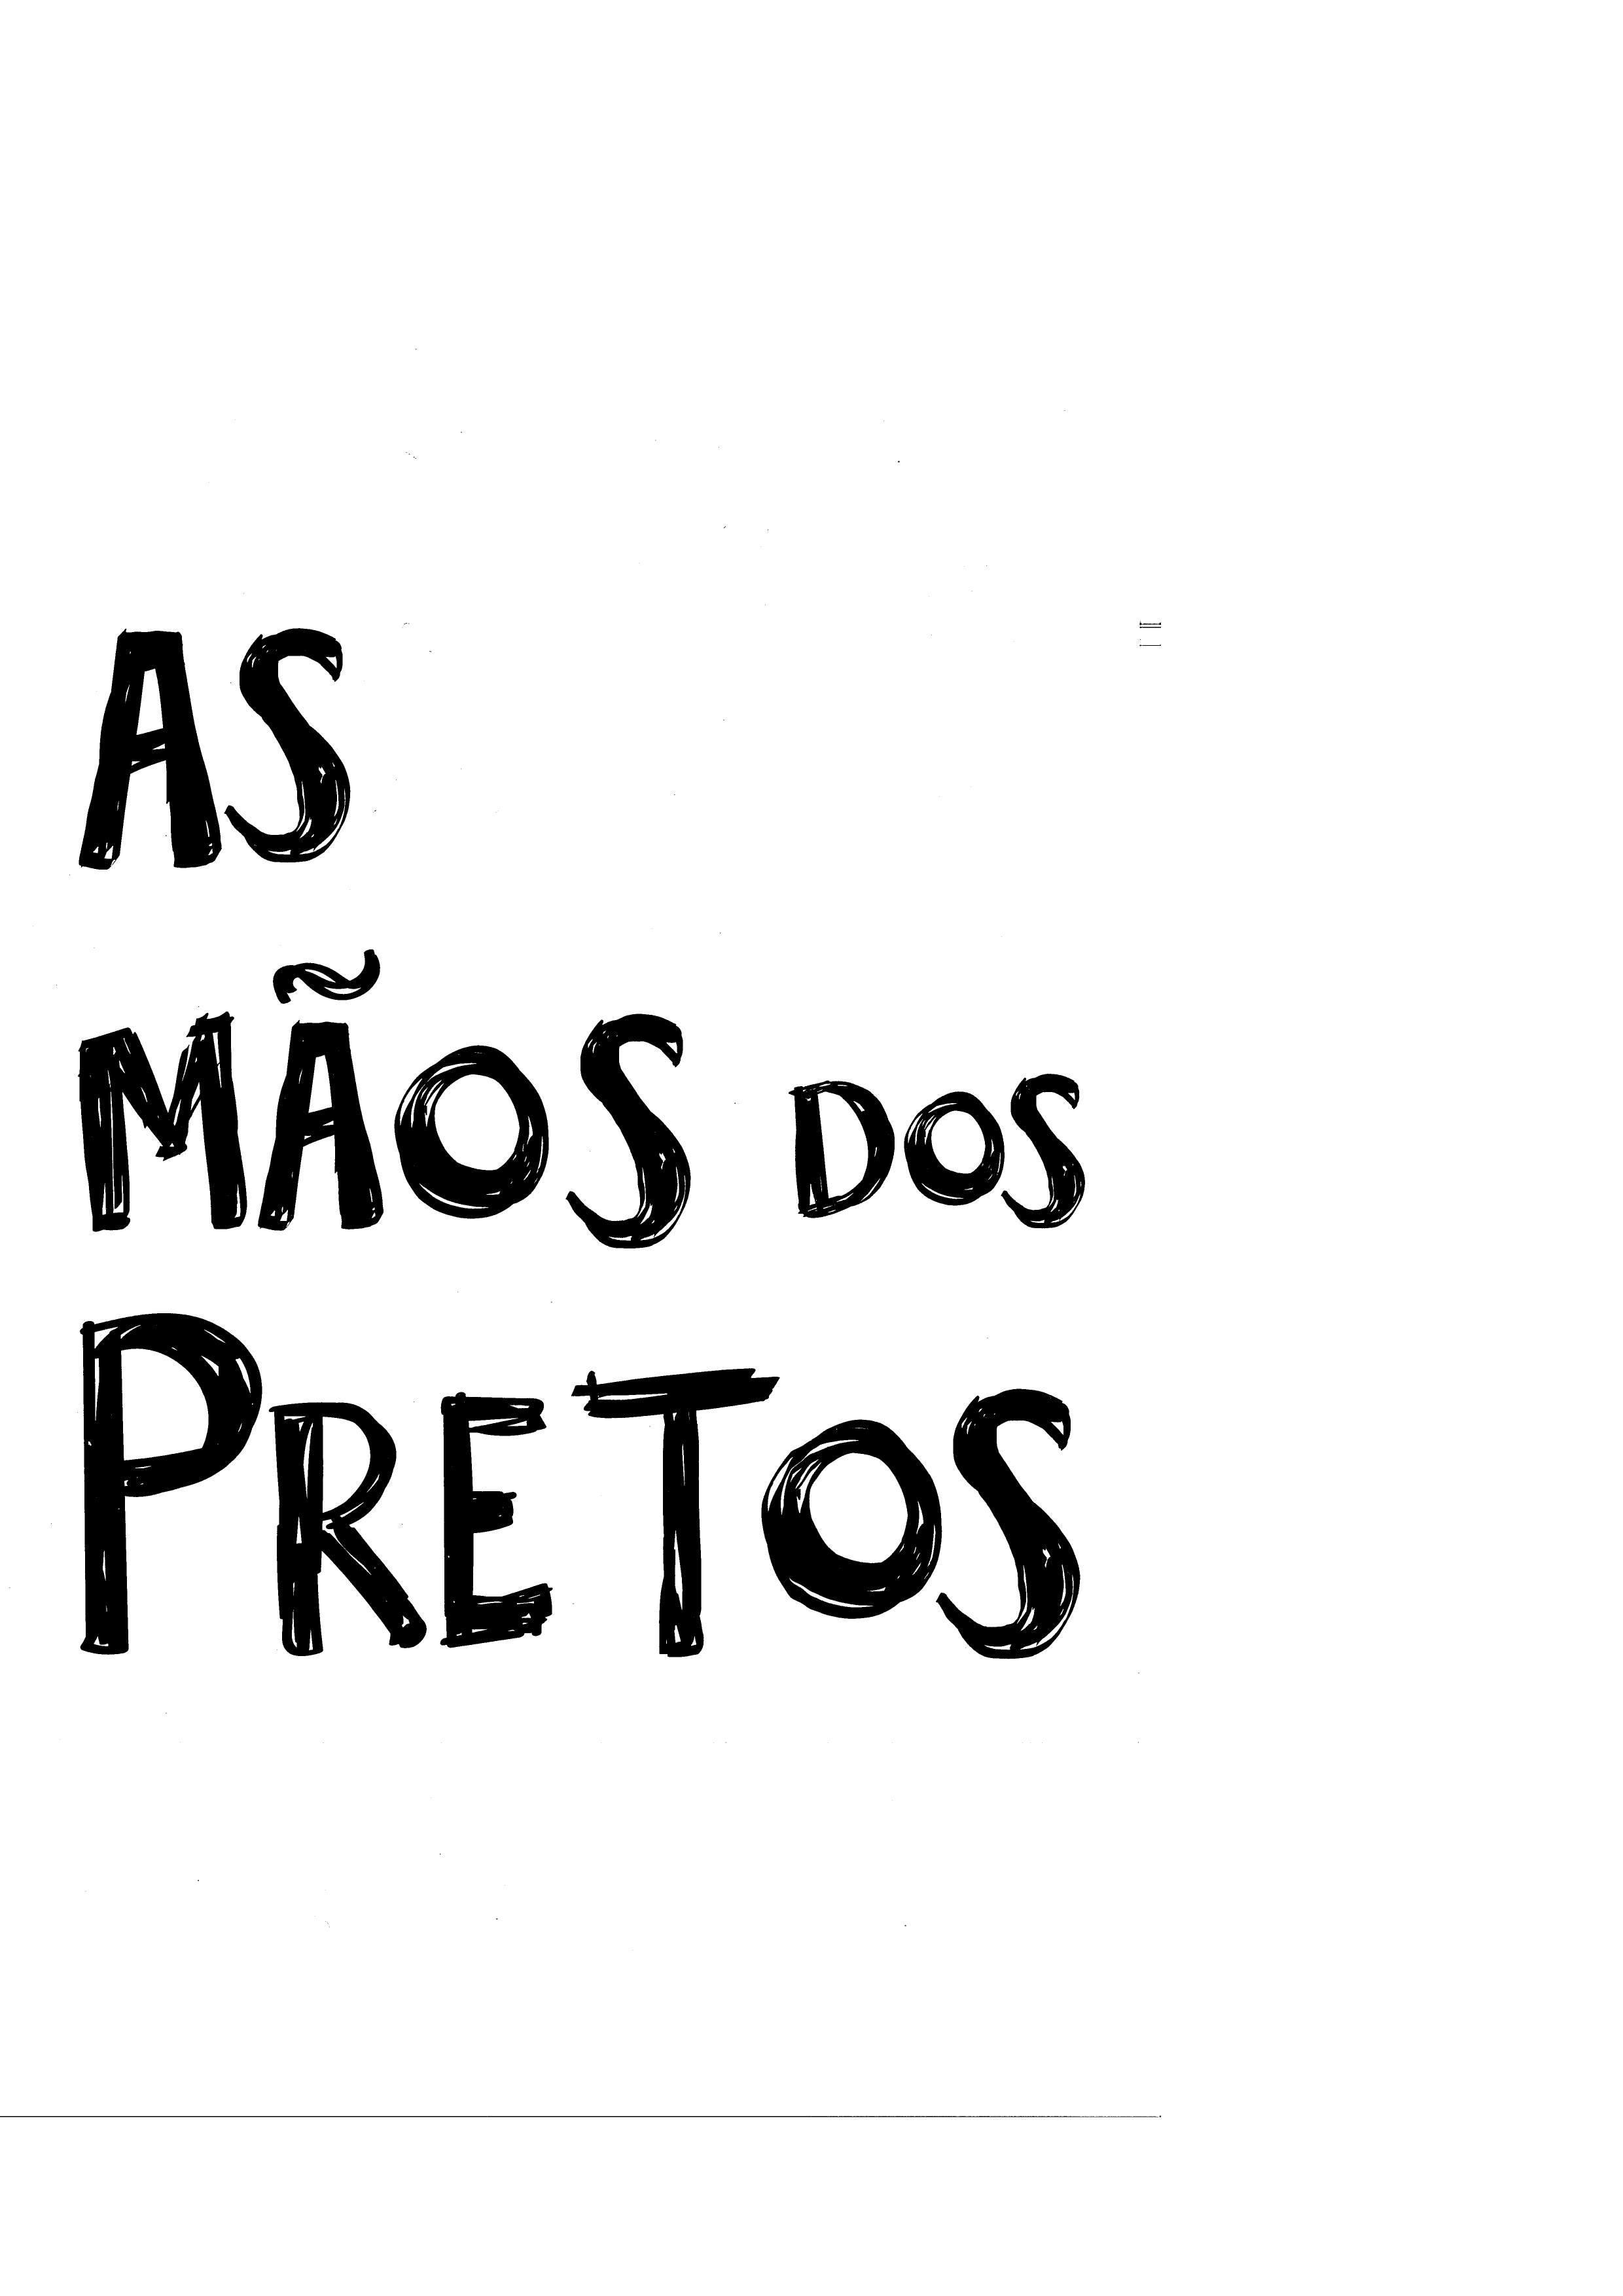 AS
MÃOS DOS
PRETOS